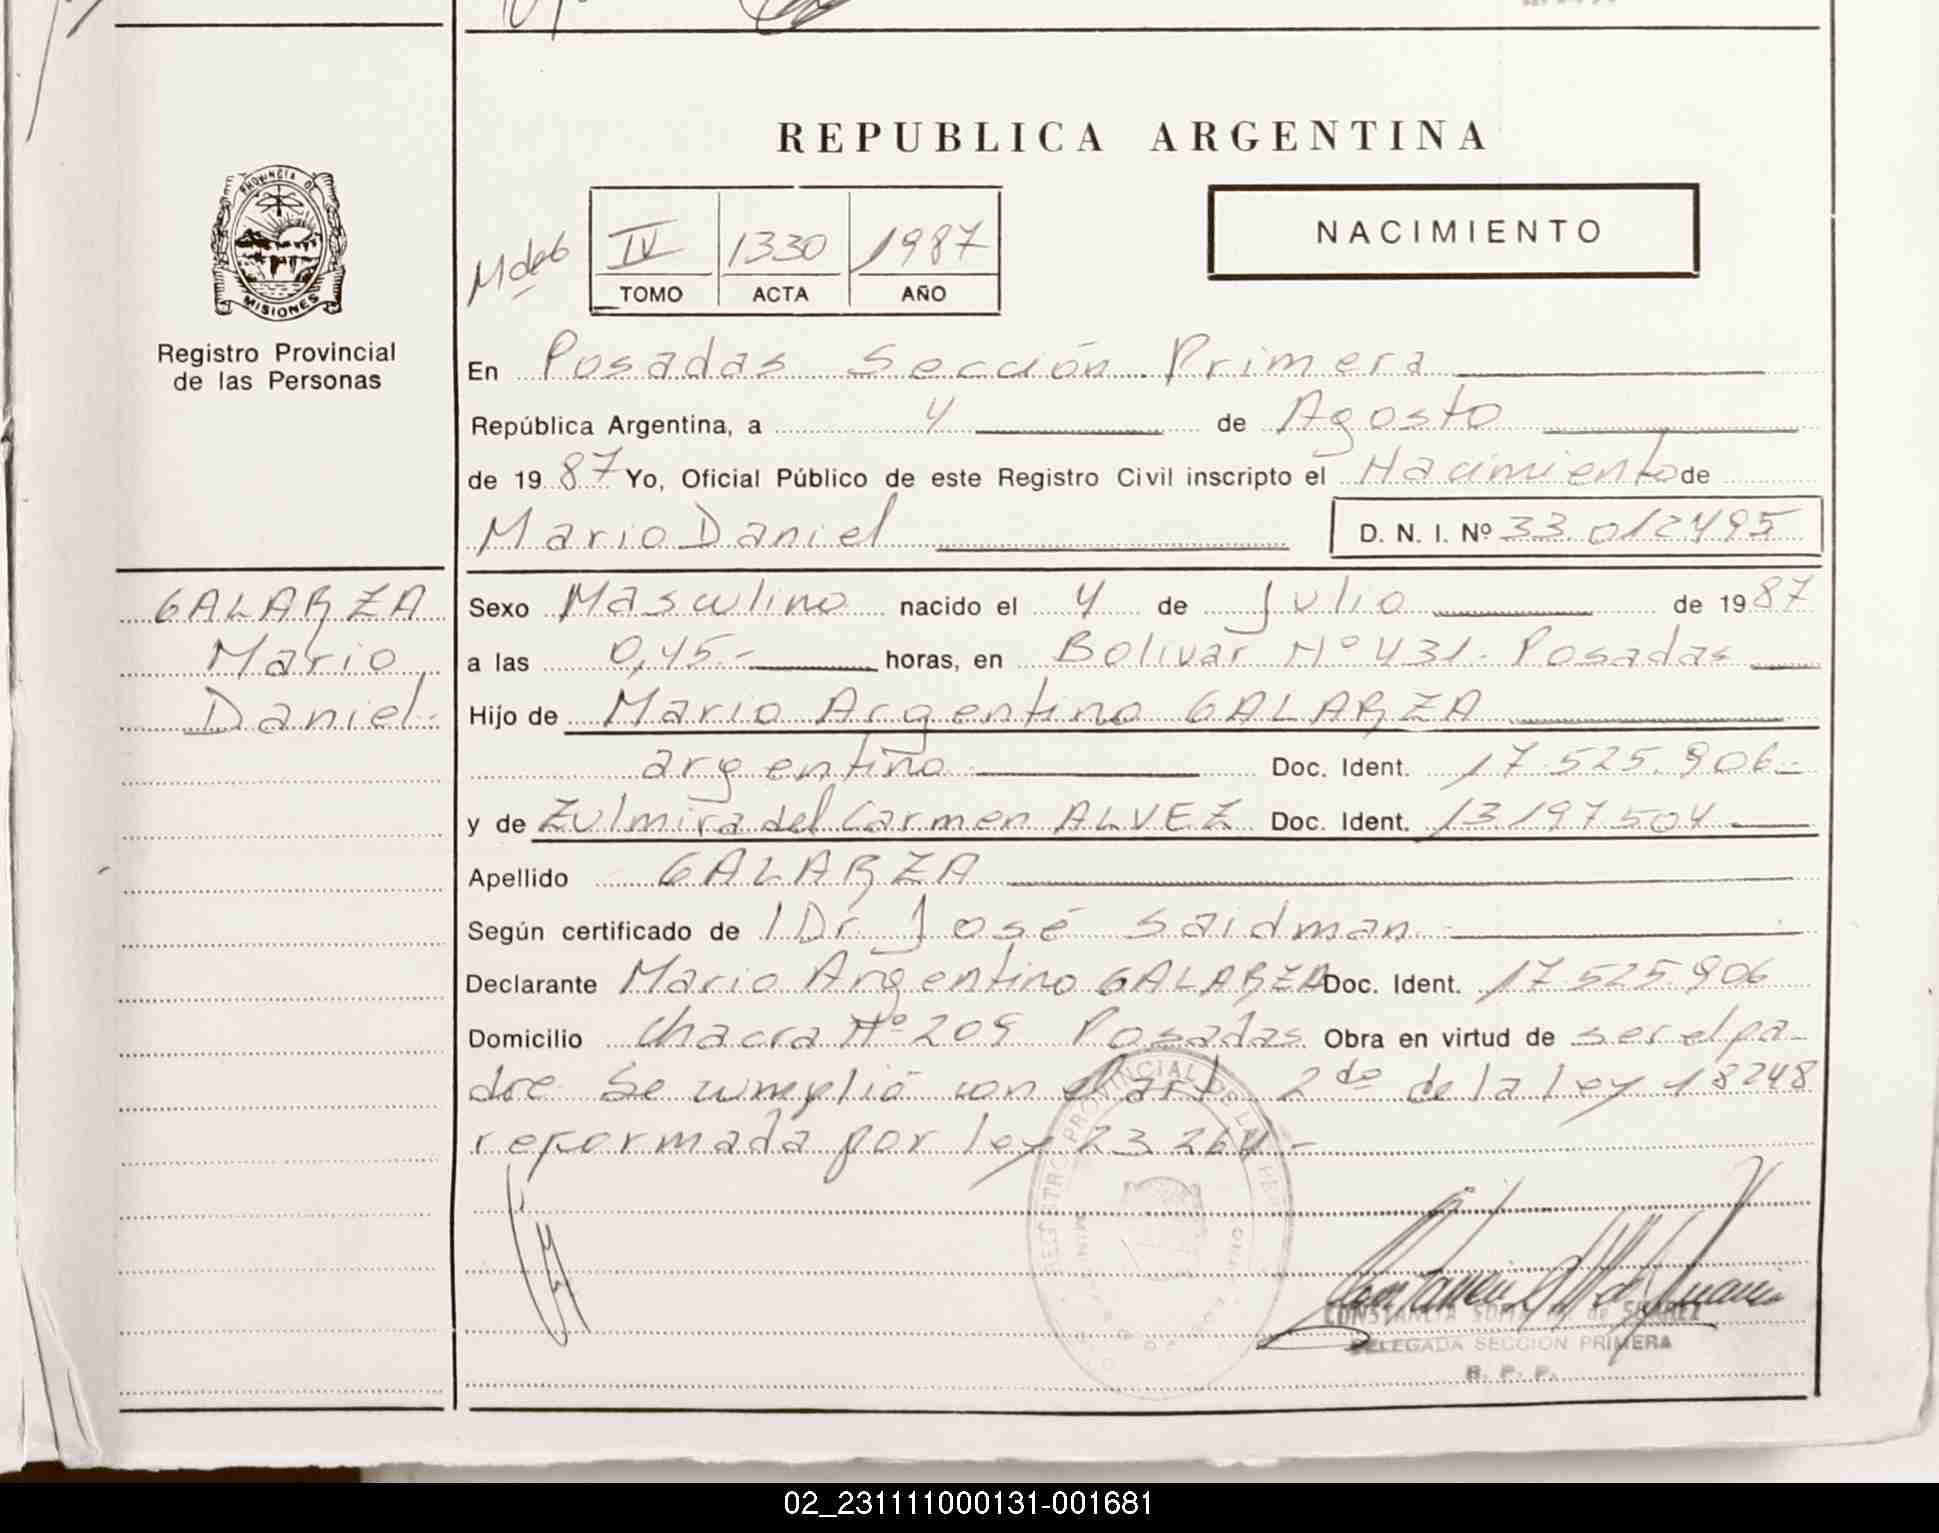 REPUBLICA ARGENTINA
PROVINCIA DE
MISIONES
Registro Provincial
de las Personas
IV 1330 1987
TOMO ACTA AÑO
NACIMIENTO
En Posadas Sección Primera
República Argentina, a 4 de Agosto
de 1987 Yo, Oficial Público de este Registro Civil inscripto el Nacimiento de
Mario Daniel D. N. I. Nº 33.012495
GALARZA
Mario
Daniel.-
Sexo Masculino nacido el 4 de Julio de 1987
a las 0,45.- horas, en Bolivar Nº 431. Posadas
Hijo de Mario Argentino GALARZA
argentino Doc. Ident. 17.525.906.-
y de Zulmira del Carmen ALVEZ Doc. Ident. 13.197.504
Apellido GALARZA
Según certificado de Dr. José Saidman.-
Declarante Mario Argentino GALARZA Doc. Ident. 17.525.906
Domicilio Chacra Nº 209 Posadas Obra en virtud de ser el pa-
dre. Se cumplió con el art. 2do de la ley 18248
reformada por ley 23.264.-
REGISTRO PROVINCIAL DE LAS PE
CONSTANCIA de SUAREZ
DELEGADA SECCION PRIMERA
R. P. P.
02_231111000131-001681